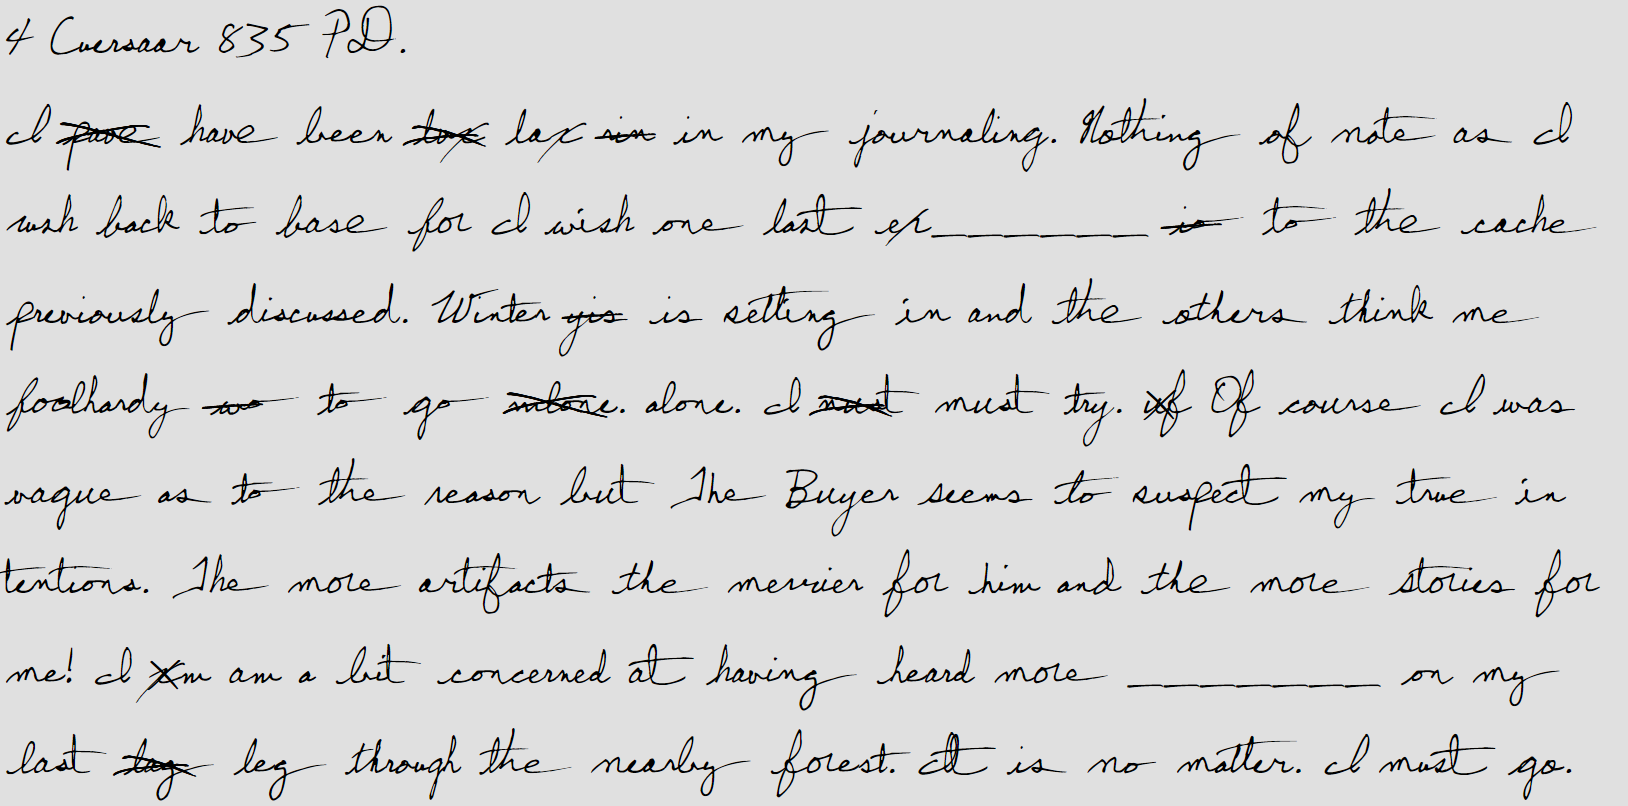 4 Cuersaar 835 P.D.
I pave have been tox lax sin in my journaling. Nothing of note as I
rush back to base for I wish one last ex______ is to the cache
previously discussed. Winter yis is setting in and the others think me
foolhardy wo to go mlone. alone. I nust must try. uf Of course I was
vague as to the reason but The Buyer seems to suspect my true in
tentions. The more artifacts the merrier for him and the more stories for
me! I xm am a bit concerned at having heard more _______ on my
last lag leg through the nearby forest. It is no matter. I must go.